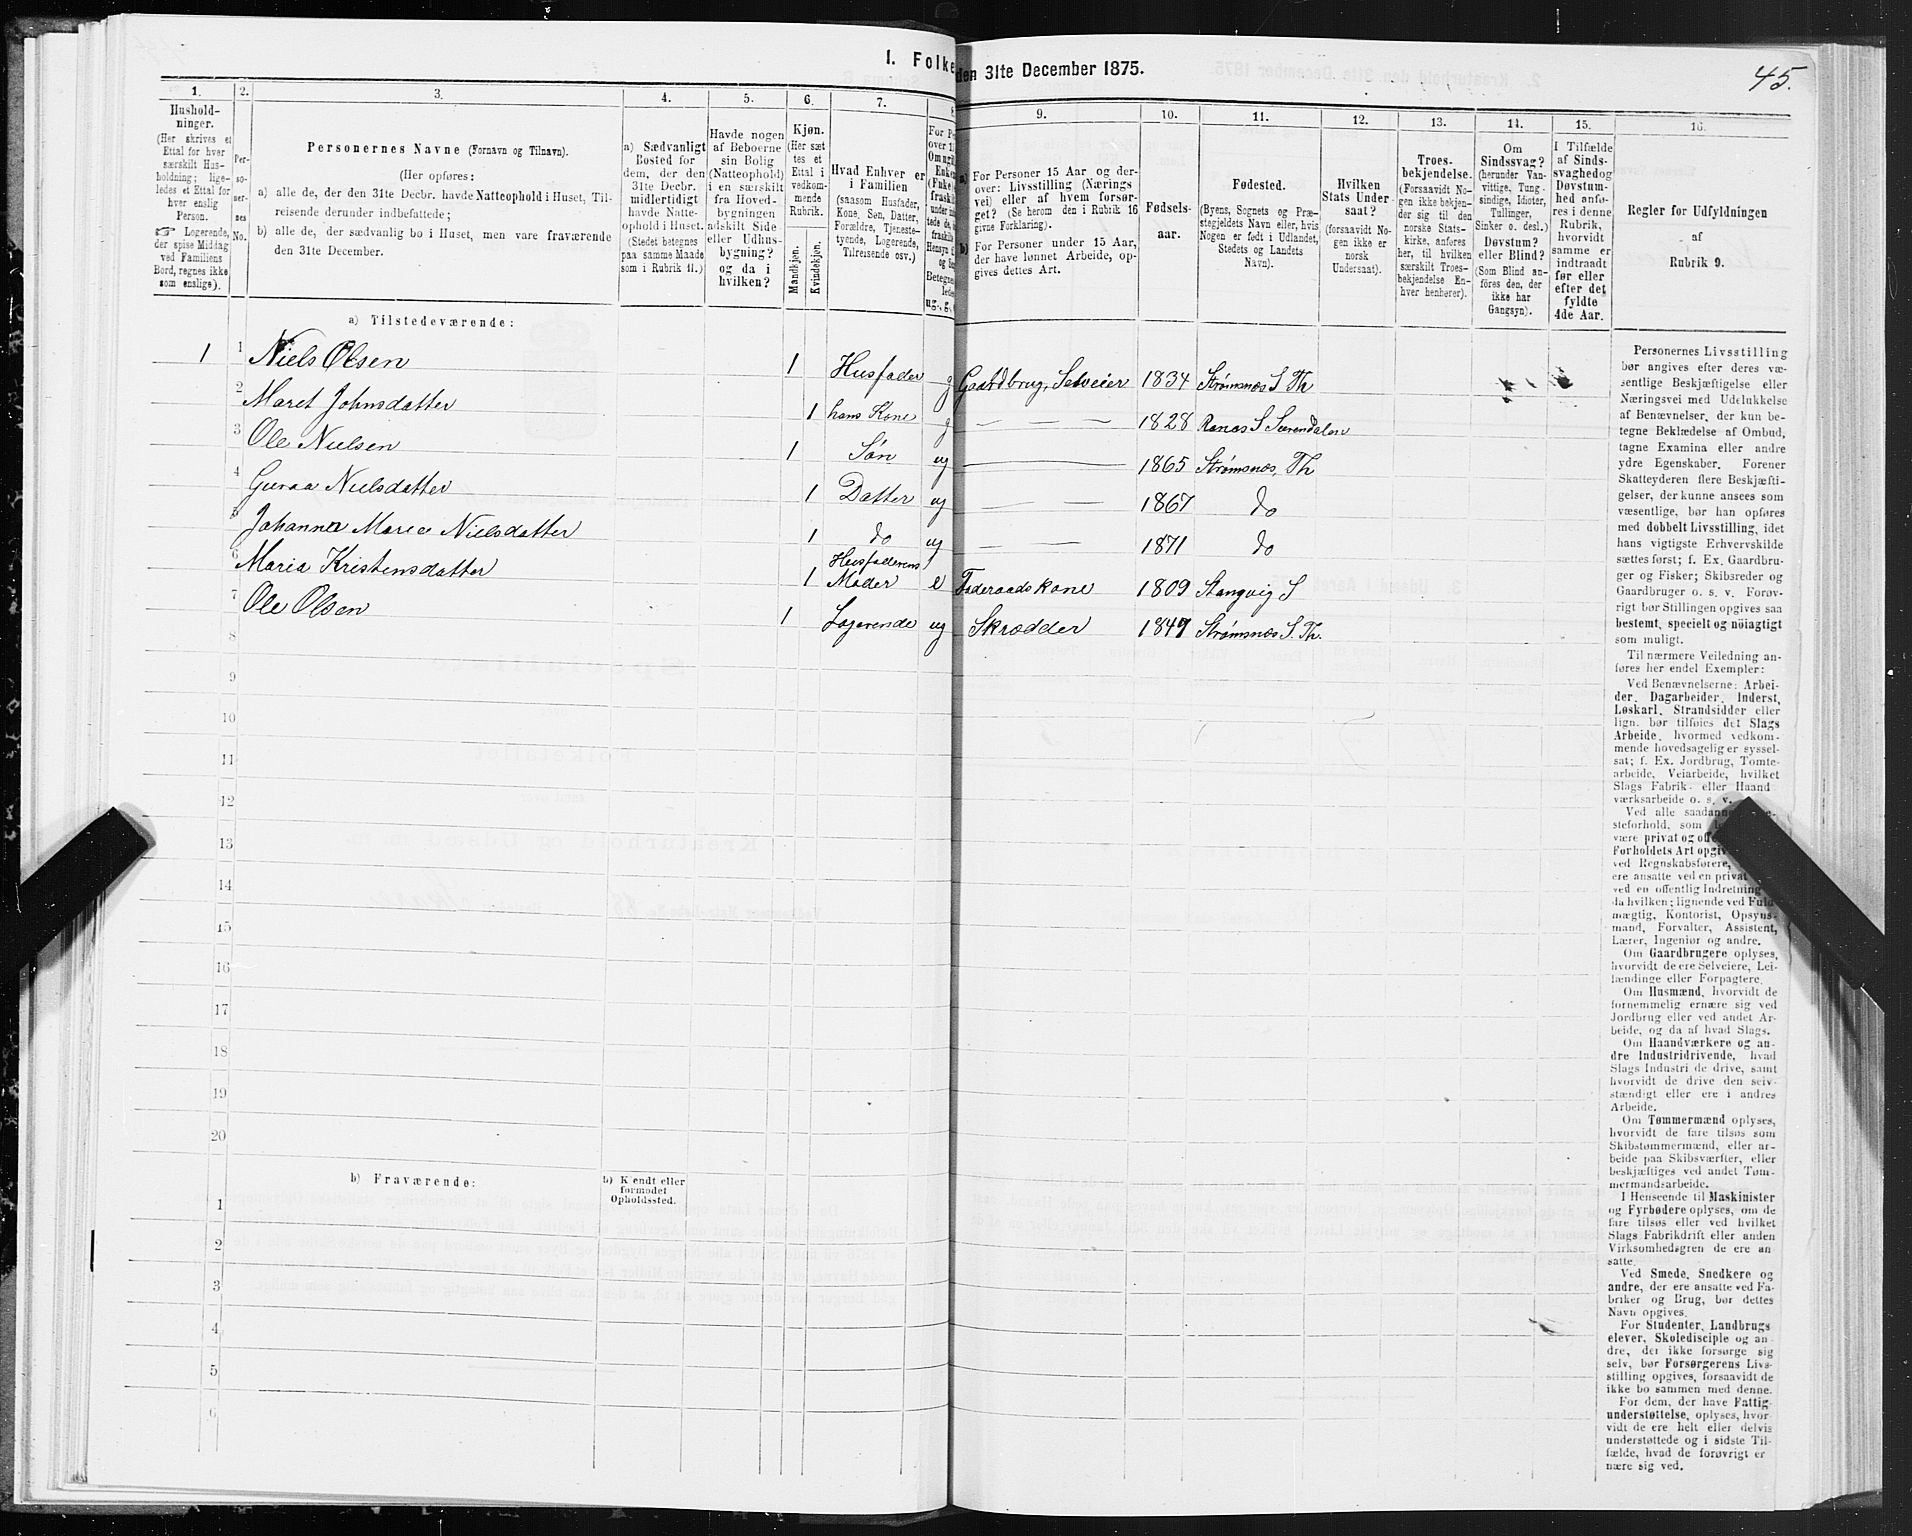 45.
1. Folke den 31te December 1875.
1. 2. 3. 4. 5. 6. 7. 8 9. 10. 11. 12. 13. 14. 15. 16.
Hushold-
ninger.
(Her skrives et
Ettal for hver
særskilt Hus-
holdning; lige-
ledes et Ettal for
hver enslig
Person.
☞ Logerende,
der spise Middag
ved Familiens
Bord, regnes ikke
som enslige).
Per-
so-
ner-
nes
No.
Personernes Navne (Fornavn og Tilnavn).
(Her opføres:
a) alle de, der den 31te Decbr. havde Natteophold i Huset, Til-
reisende derunder indbefattede;
b) alle de, der sædvanlig bo i Huset, men vare fraværende
den 31te December.
a) Sædvanligt
Bosted for
dem, der den
31te Decbr.
midlertidigt
havde Natte-
ophold i Huset.
(Stedet betegnes
paa samme Maade
som i Rubrik 11.)
Havde nogen
af Beboerne
sin Bolig
(Natteophold)
i en særskilt
fra Hoved-
bygningen
adskilt Side-
eller Udhus-
bygning?
og da i
hvilken?
Kjøn.
(Her sæt
tes et
Ettal i
vedkom-
mende
Rubrik.
Mandkjøn.
Kvindekjøn.
Hvad Enhver er
i Familien
(saasom Husfader,
Kone, Søn, Datter,
Forældre, Tjeneste-
tyende, Logerende,
Tilreisende osv.)
a) For Personer 15 Aar og der-
over: Livsstilling (Nærings
vei) eller af hvem forsør-
get? (Se herom den i Rubrik 16
givne Forklaring).
b) For Personer under 15 Aar,
der have lønnet Arbeide, op-
gives dettes Art.
Fødsels-
aar.
Fødested.
(Byens, Sognets og Præ-
stegjeldets Navn eller, hvis
Nogen er født i Udlandet,
Stedets og Landets
Navn).
Hvilken
Stats Under-
saat?
(forsaavidt No-
gen ikke er
norsk
Undersaat).
Troes-
bekjendelse.
(Forsaavidt No-
gen ikke bekjen-
der sig til den
norske Stats-
kirke, anføres
her, til hvilken
særskilt Troes-
bekjendelse En-
hver henhører).
Om
Sindssvag?
(herunder Van-
vittige, Tung-
sindige, Idioter,
Tullinger,
Sinker o. desl.)
Døvstum?
eller Blind?
(Som Blind an-
føres den, der
ikke har
Gangsyn).
I Tilfælde
af Sinds-
svaghed og
Døvstum-
hed anfø-
res i denne
Rubrik,
hvorvidt
samme er
indtraadt
før eller
efter det
fyldte
4de Aar.
Regler for Udfyldningen
af
Rubrik 9.
a) Tilstedeværende:
1 1 Niels Olsen 1 Husfader g Gaardbrug, Selveier 1834 Strømsnes S Th
2 Maret Johnsdatter 1 hans Kone g — — — 1828 Ranes S Surendalen
3 Ole Nielsen 1 Søn ug — — 1865 Strømsnes, Th
4 Guraa Nielsdatter 1 Datter ug — — 1867 do
5 Johanna Marie Nielsdatter 1 do ug — — 1871 do
6 Maria Kristensdatter 1 Husfaderens Moder e Føderaadskone 1809 Stangvig S
7 Ole Olsen 1 Logerende ug Skrædder 1847 Strømsnes S. Th.
8
9
10
11
12
13
14
15
16
17
18
19
20
b) Fraværende:
b) Kendt eller
formodet
Opholdssted.
1
2
3
4
5
6
Personernes Livsstilling
bør angives efter deres væ-
sentlige Beskjæftigelse eller
Næringsvei med Udelukkelse
af Benævnelser, der kun be-
tegne Beklædelse af Ombud,
tagne Examina eller andre
ydre Egenskaber. Forener
Skatteyderen flere Beskjæfti-
gelser, der kunne ansees som
væsentlige, bør han opføres
med dobbelt Livsstilling, idet
hans vigtigste Erhvervskilde
sættes først; f. Ex. Gaardbru-
ger og Fisker; Skibsreder og
Gaardbruger o. s. v. Forøv-
rigt bør Stillingen opgives saa
bestemt, specielt og nöiagtigt
som muligt.
Til nærmere Veiledning an-
føres her endel Exempler:
Ved Benævnelserne: Arbei-
der, Dagarbeider, Inderst,
Løskarl, Strandsidder eller
lign. bør tilføies det Slags
Arbeide, hvormed vedkom-
mende hovedsagelig er syssel-
sat; f. Ex. Jordbrug, Tomte-
arbeide, Veiarbeide, hvilket
Slags Fabrik- eller Haand
værksarbeide o. s. v.
Ved alle saadanne
steforhold, som
være privat og
Forholdets Art
ved Regnskabsførere,
ere ansatte ved en privat
ved en offentlig Indretning
da hvilken; lignende ved Fuld
mægtig, Kontorist, Opsyns-
mand, Forvalter, Assistent,
Lærer, Ingeniør og andre.
Om Gaardbrugere oplyses,
hvorvidt de ere Selveiere, Lei-
lændinge eller Forpagtere.
Om Husmænd, hvorvidt de
fornemmelig ernære sig ved
Jordbrug eller ved andet Ar-
beide, og da af hvad Slags.
Om Haandværkere og an-
dre Industridrivende, hvad
Slags Industri de drive, samt
hvorvidt de drive den selv-
stændigt eller ere i andres
Arbeide.
Om Tømmermænd oplyses,
hvorvidt de fare tilsøs som
Skibstømmermænd, eller ar-
beide paa Skibsværfter, eller
beskjæftiges ved andet Tøm-
mermandsarbeide.
I Henseende til Maskinister
og Fyrbødere oplyses, om de
fare tilsøs eller ved hvilket
Slags Fabrikdrift eller anden
Virksomhedsgren de ere an-
satte.
Ved Smede, Snedkere og
andre, der ere ansatte ved Fa-
briker og Brug, bør dettes
Navn opgives.
For Studenter, Landbrugs
elever, Skoledisciple og an-
dre, der ikke forsørge sig
selv, bør Forsørgerens Livs-
stilling opgives, forsaavidt de
ikke bo sammen med denne.
For dem, der have Fattig
understøttelse, oplyses, hvor-
vidt de ere helt eller delvis
understøttede og i sidste Til-
fælde, hvad de forøvrigt er
nære sig ved.